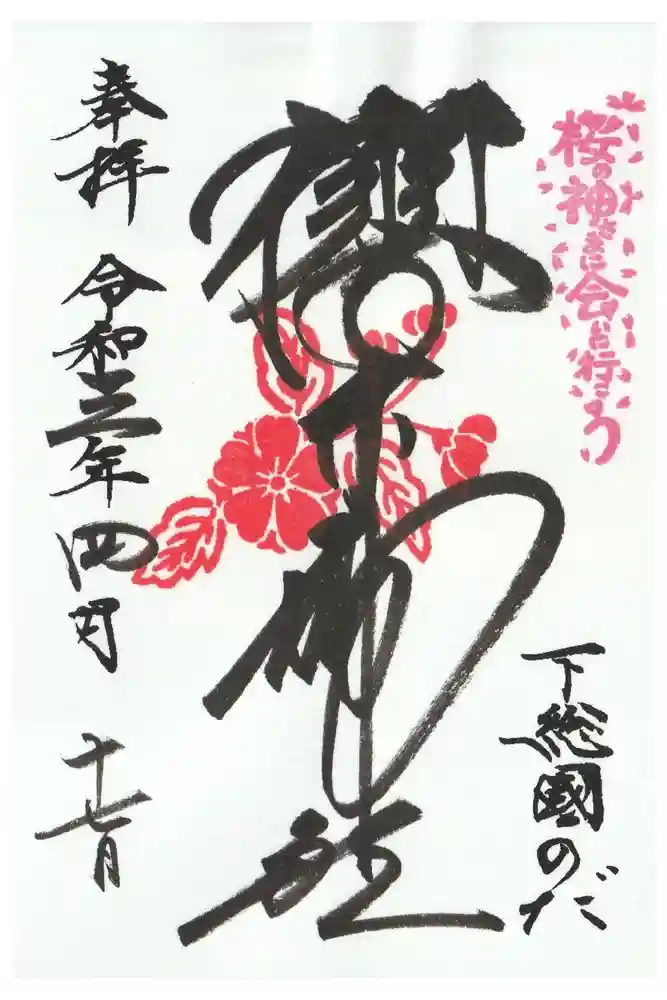 桜の神さまに会いに行こう
下総國のだ
櫻木神社
奉拝 令和三年四月十七日